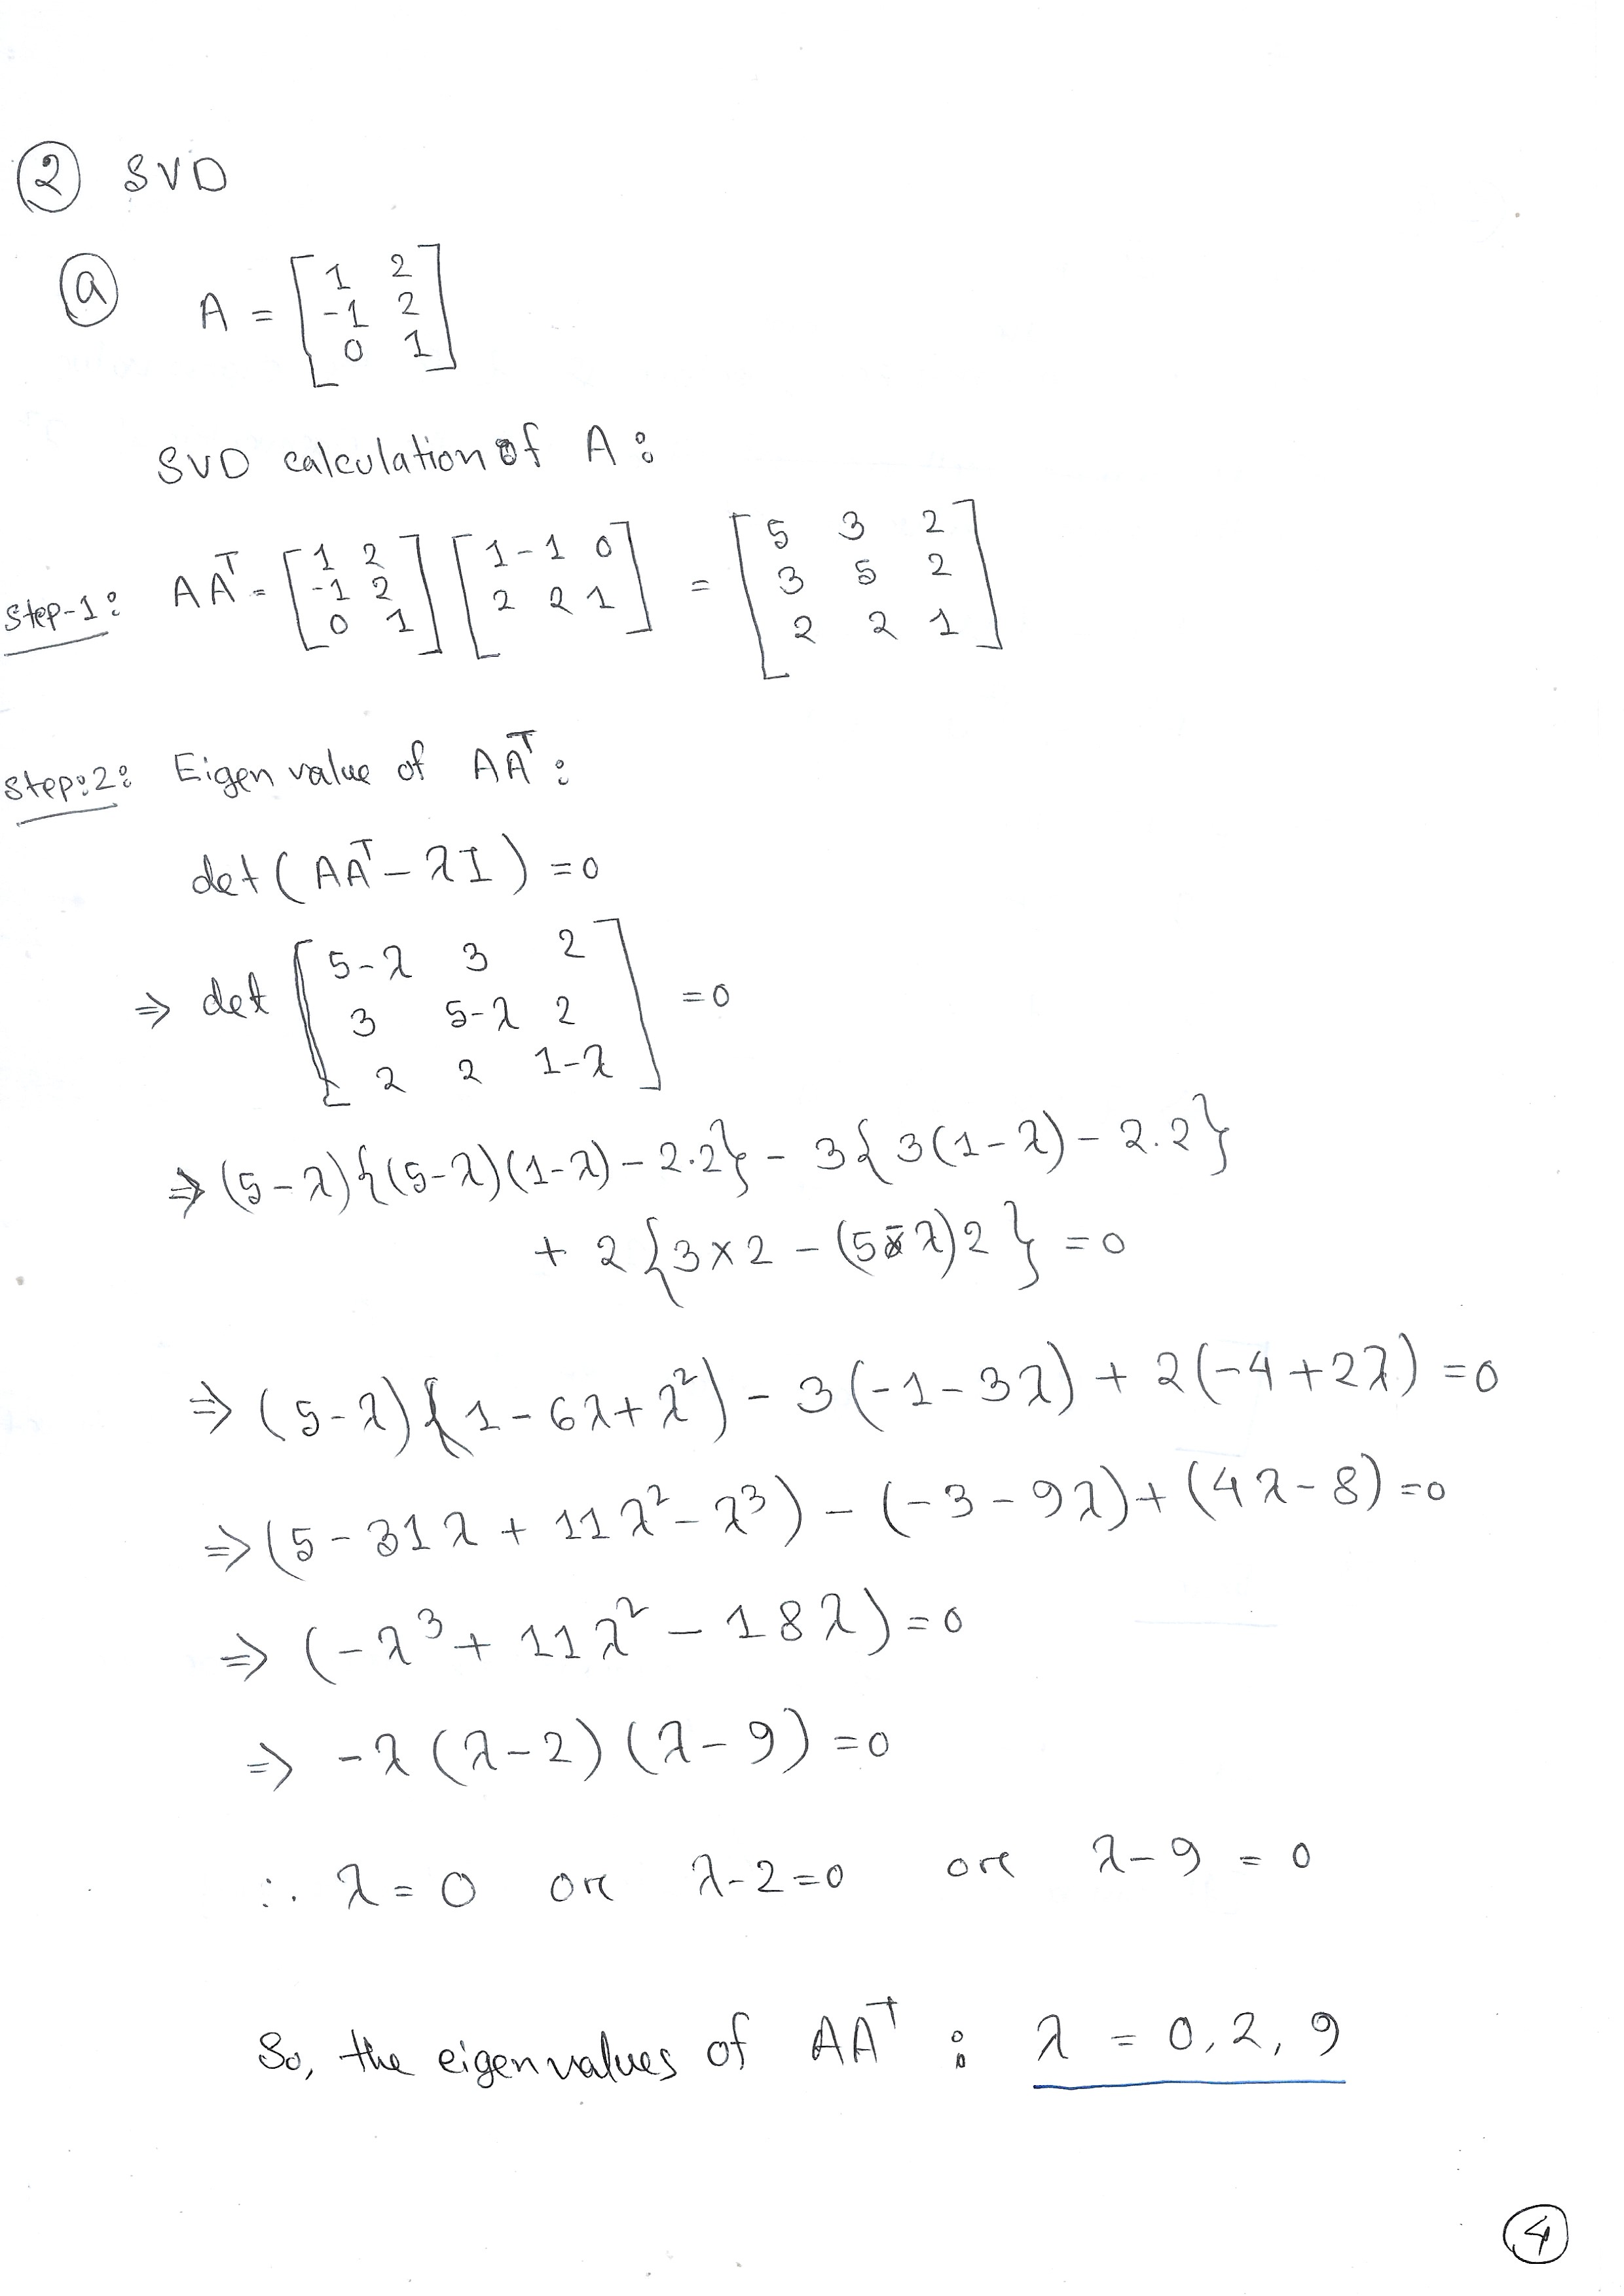 ② SVD
ⓐ A = [1 2; -1 2; 0 1]
SVD calculation of A :
Step-1: AAᵀ = [1 2; -1 2; 0 1] [1 -1 0; 2 2 1] = [5 3 2; 3 5 2; 2 2 1]
Step:2: Eigen value of AAᵀ :
det (AAᵀ - λI) = 0
⇒ det [5-λ 3 2; 3 5-λ 2; 2 2 1-λ] = 0
⇒ (5-λ){(5-λ)(1-λ) - 2.2} - 3{3(1-λ) - 2.2}
+ 2{3×2 - (5-λ)2} = 0
⇒ (5-λ){1-6λ+λ²) - 3(-1-3λ) + 2(-4+2λ) = 0
⇒ (5-31λ + 11λ² - λ³) - (-3-9λ) + (4λ-8) = 0
⇒ (-λ³ + 11λ² - 18λ) = 0
⇒ -λ (λ-2) (λ-9) = 0
∴ λ = 0 or λ-2=0 or λ-9 = 0
So, the eigenvalues of AAᵀ : λ = 0, 2, 9
④